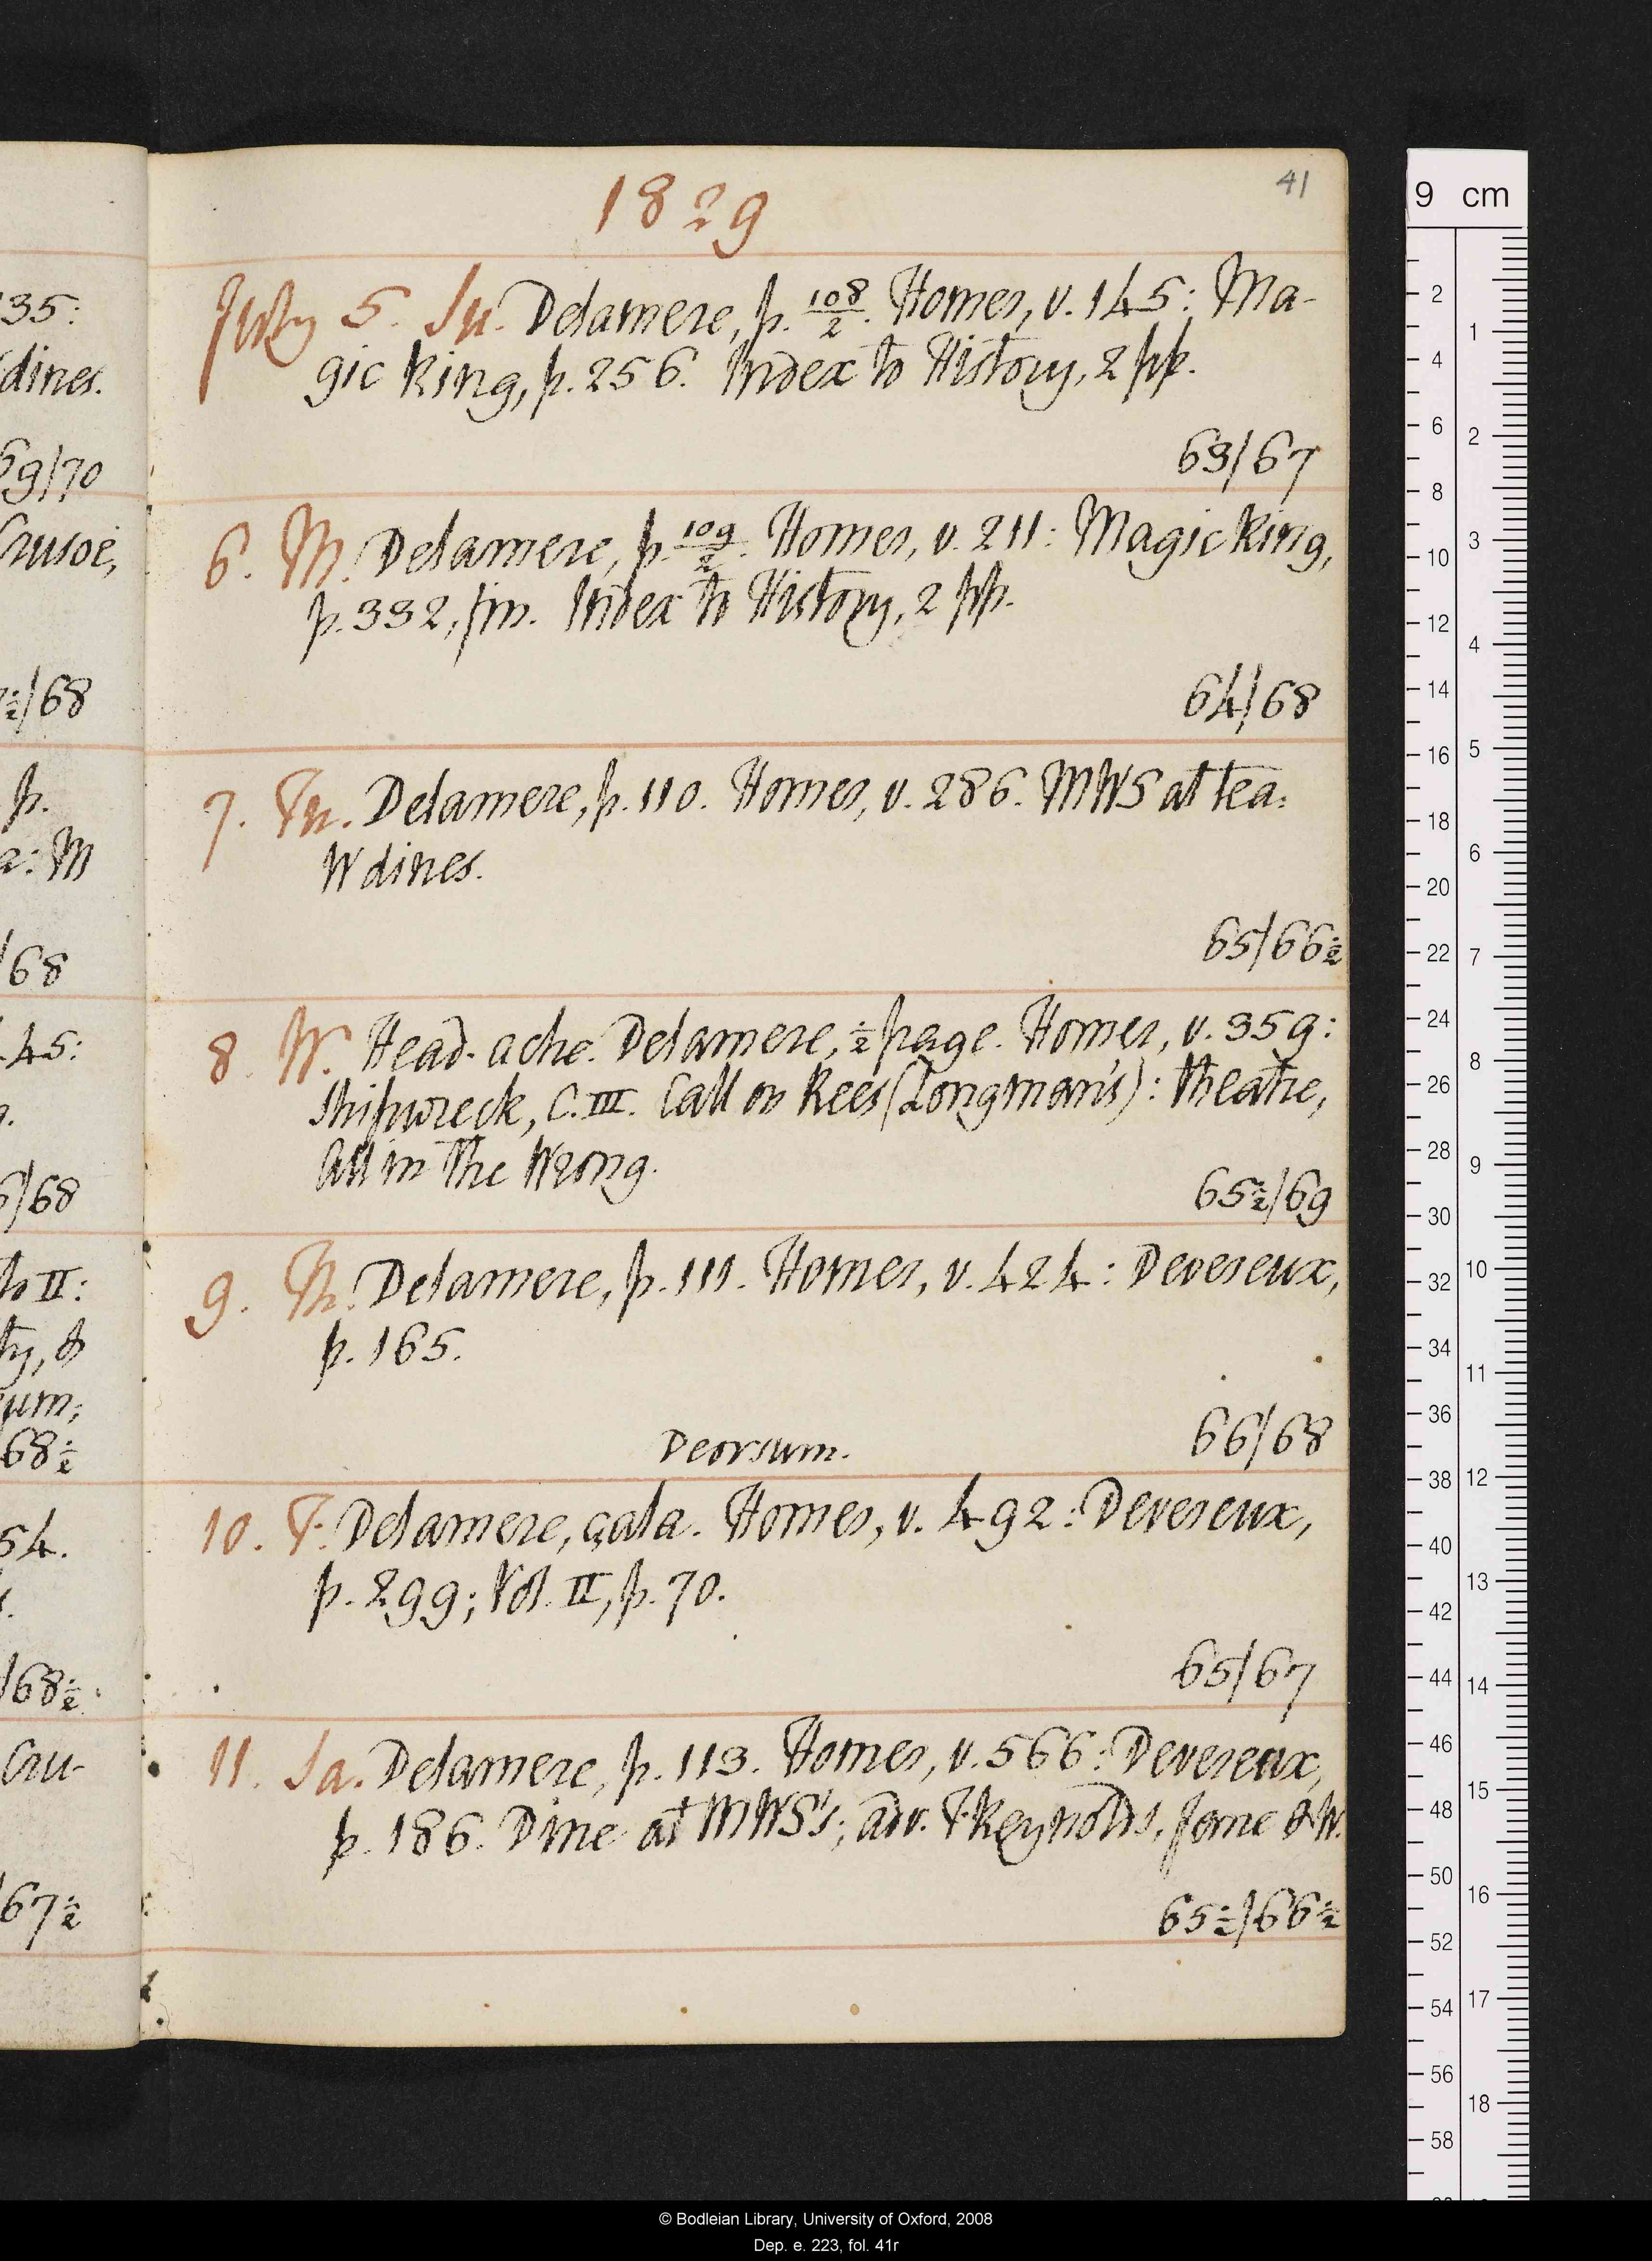 1829
41
July 5. Su. Delamere, p. 108/2. Homer, v. 145: Ma-
gic Ring, p. 256. Index to History, 2 pp.
63/67
6. M. Delamere, p. 109/2. Homer, v. 211: Magic Ring,
p. 332, fin. Index to History, 2 pp.
64/68
7. Tu. Delamere, p. 110. Homer, v. 286. MWS at tea:
W dines.
65/66½
8. W. Head-ache. Delamere, ½ page. Homer, v. 359:
Shipwreck, C. III. Call on Rees (Longman's): theatre,
All in the Wrong.
65½/69
9. Th. Delamere, p. 111. Homer, v. 424: Devereux,
p. 165.
Deorsum.
66/68
10. F. Delamere, çala. Homer, v. 492: Devereux,
p. 299; Vol. II, p. 70.
65/67
11. Sa. Delamere, p. 113. Homer, v. 566: Devereux,
p. 186. Dine at MWS's; adv. F Reynolds, Jane & W.
65½/66½
35:
dines.
69/70
Crusoe,
½/68
p.
a: M
/68
45:
/68
to II:
ty, &
um;
68½
54.
/68½
Cru-
67½
9 cm
2
4
6
8
10
12
14
16
18
20
22
24
26
28
30
32
34
36
38
40
42
44
46
48
50
52
54
56
58
1
2
3
4
5
6
7
8
9
10
11
12
13
14
15
16
17
18
© Bodleian Library, University of Oxford, 2008
Dep. e. 223, fol. 41r